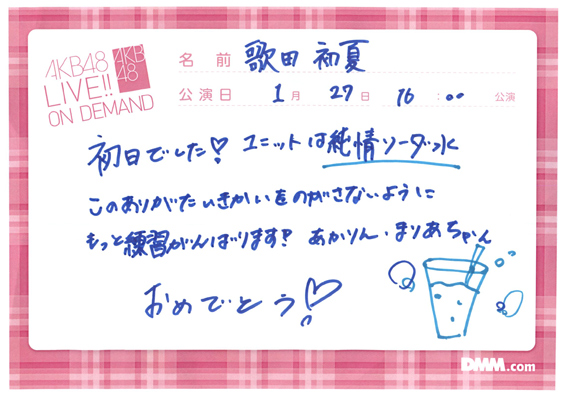 AKB48
LIVE!!
ON DEMAND
AKB
48
名前 歌田 初夏
公演日 1月 27日 16:00 公演
初日でした! ユニットは純情ソーダ水
このありがたいきかいをのがさないように
もっと練習がんばります! あかりん・まりあちゃん
おめでとう!
DMM.com